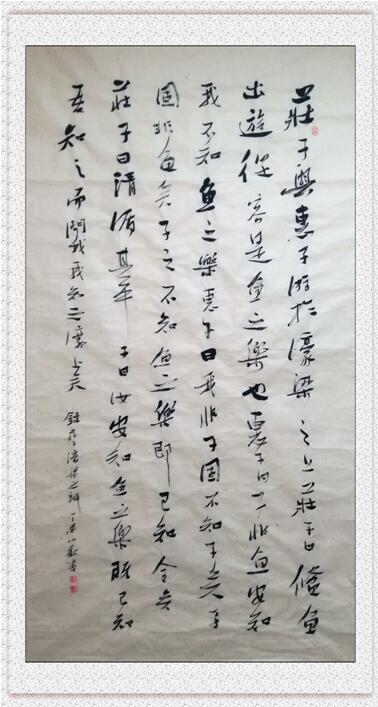 莊子與惠子游於濠梁之上莊子曰鯈魚
出遊從容是魚之樂也惠子曰子非魚安知
我不知魚之樂惠子曰我非子固不知子矣子
固非魚矣子之不知魚之樂即已知全矣
莊子曰請循其本子曰汝安知魚之樂既已知
吾知之而問我我知之濠上矣
錄莊子濠梁之辯